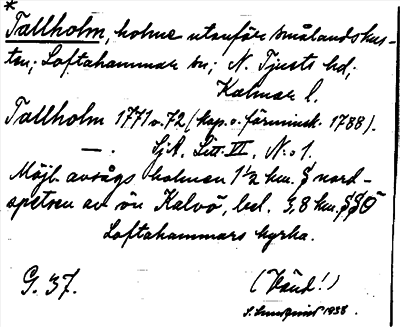 *
Tallholm, holme utanför smålandskus-
ten; Loftahammar sn; N. Tjusts hd;
Kalmar l.
Tallholm 1771 o. 72 (kap. o. färminsk. 1788).
—. Sj.A. Litt. VI, N:o 1.
Möjl. avsågs holmen 1 1/2 km. § nord-
spetsen av ön Kalvö, bel. 3,8 km. §§Ö
Loftahammars kyrka.
G. 37. (Vänd!)
1938.